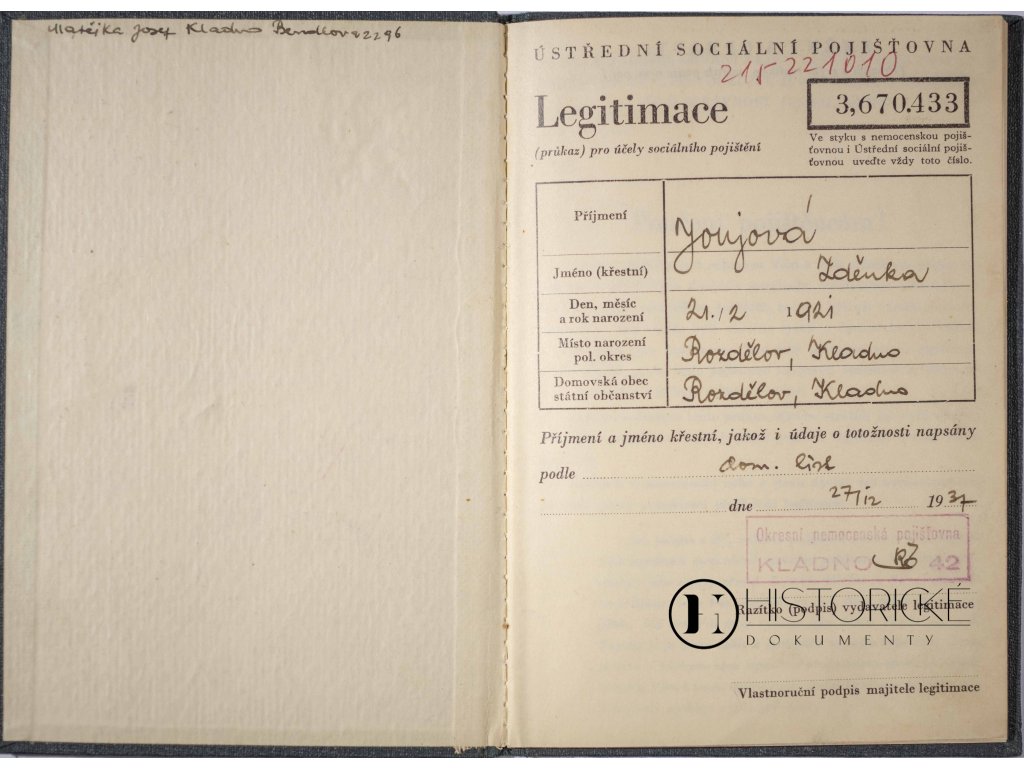 Matějka Josef Kladno Bendlova 2296
ÚSTŘEDNÍ SOCIÁLNÍ POJIŠŤOVNA
215221010
Legitimace
3,670.433
(průkaz) pro účely sociálního pojištění
Ve styku s nemocenskou pojiš-
ťovnou i Ústřední sociální pojiš-
ťovnou uveďte vždy toto číslo.
Příjmení
Jméno (křestní) Zděnka
Den, měsíc
a rok narození 21./2 1921
Místo narození
pol. okres Rozdělov, Kladno
Domovská obec
státní občanství Rozdělov, Kladno
Příjmení a jméno křestní, jakož i údaje o totožnosti napsány
podle dom. list
dne 27/12 1937
Okresní nemocenská pojišťovna
KLADNO 42
Razítko (podpis) vydavatele legitimace
HISTORICKÉ
DOKUMENTY
Vlastnoruční podpis majitele legitimace